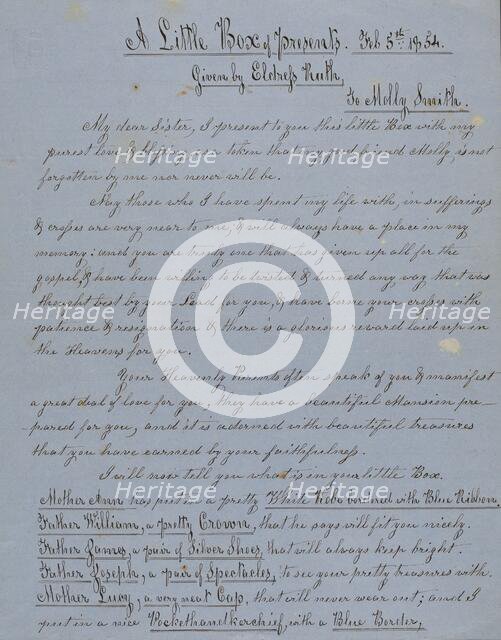 A Little Box of Presents. Feb 5th 1854.
Given by Eldress Ruth,
To Molly Smith.
My dear Sister, I present to you this little Box with my
purest love & blessing, as a token that my good friend Molly is not
forgotten by me nor never will be.
Nay those who I have spent my life with, in sufferings
& crosses are very near to me, & will always have a place in my
memory: and you are truly one that has given up all for the
gospel, & have been willing to be twisted & turned any way that was
thought best by your Lead for you, & have borne your crosses with
patience & resignation & there is a glorious reward laid up in
the Heavens for you.
Your Heavenly Parents often speak of you & manifest
a great deal of love for you, they have a beautiful Mansion pre-
pared for you, and it is adorned with beautiful treasures
that you have earned by your faithfulness.
I will now tell you what is in your little Box.
Mother Ann has put in a pretty White Robe bordered with Blue Ribbon.
Father William, a pretty Crown, that he says will fit you nicely.
Father James, a pair of Silver Shoes, that will always keep bright.
Father Joseph, a pair of Spectacles, to see your pretty treasures with.
Mother Lucy, a very neat Cap, that will never wear out; and I
put in a nice Pockethandkerchief, with a Blue Border,
Heritage Heritage
Heritage Heritage
Heritage Heritage
C